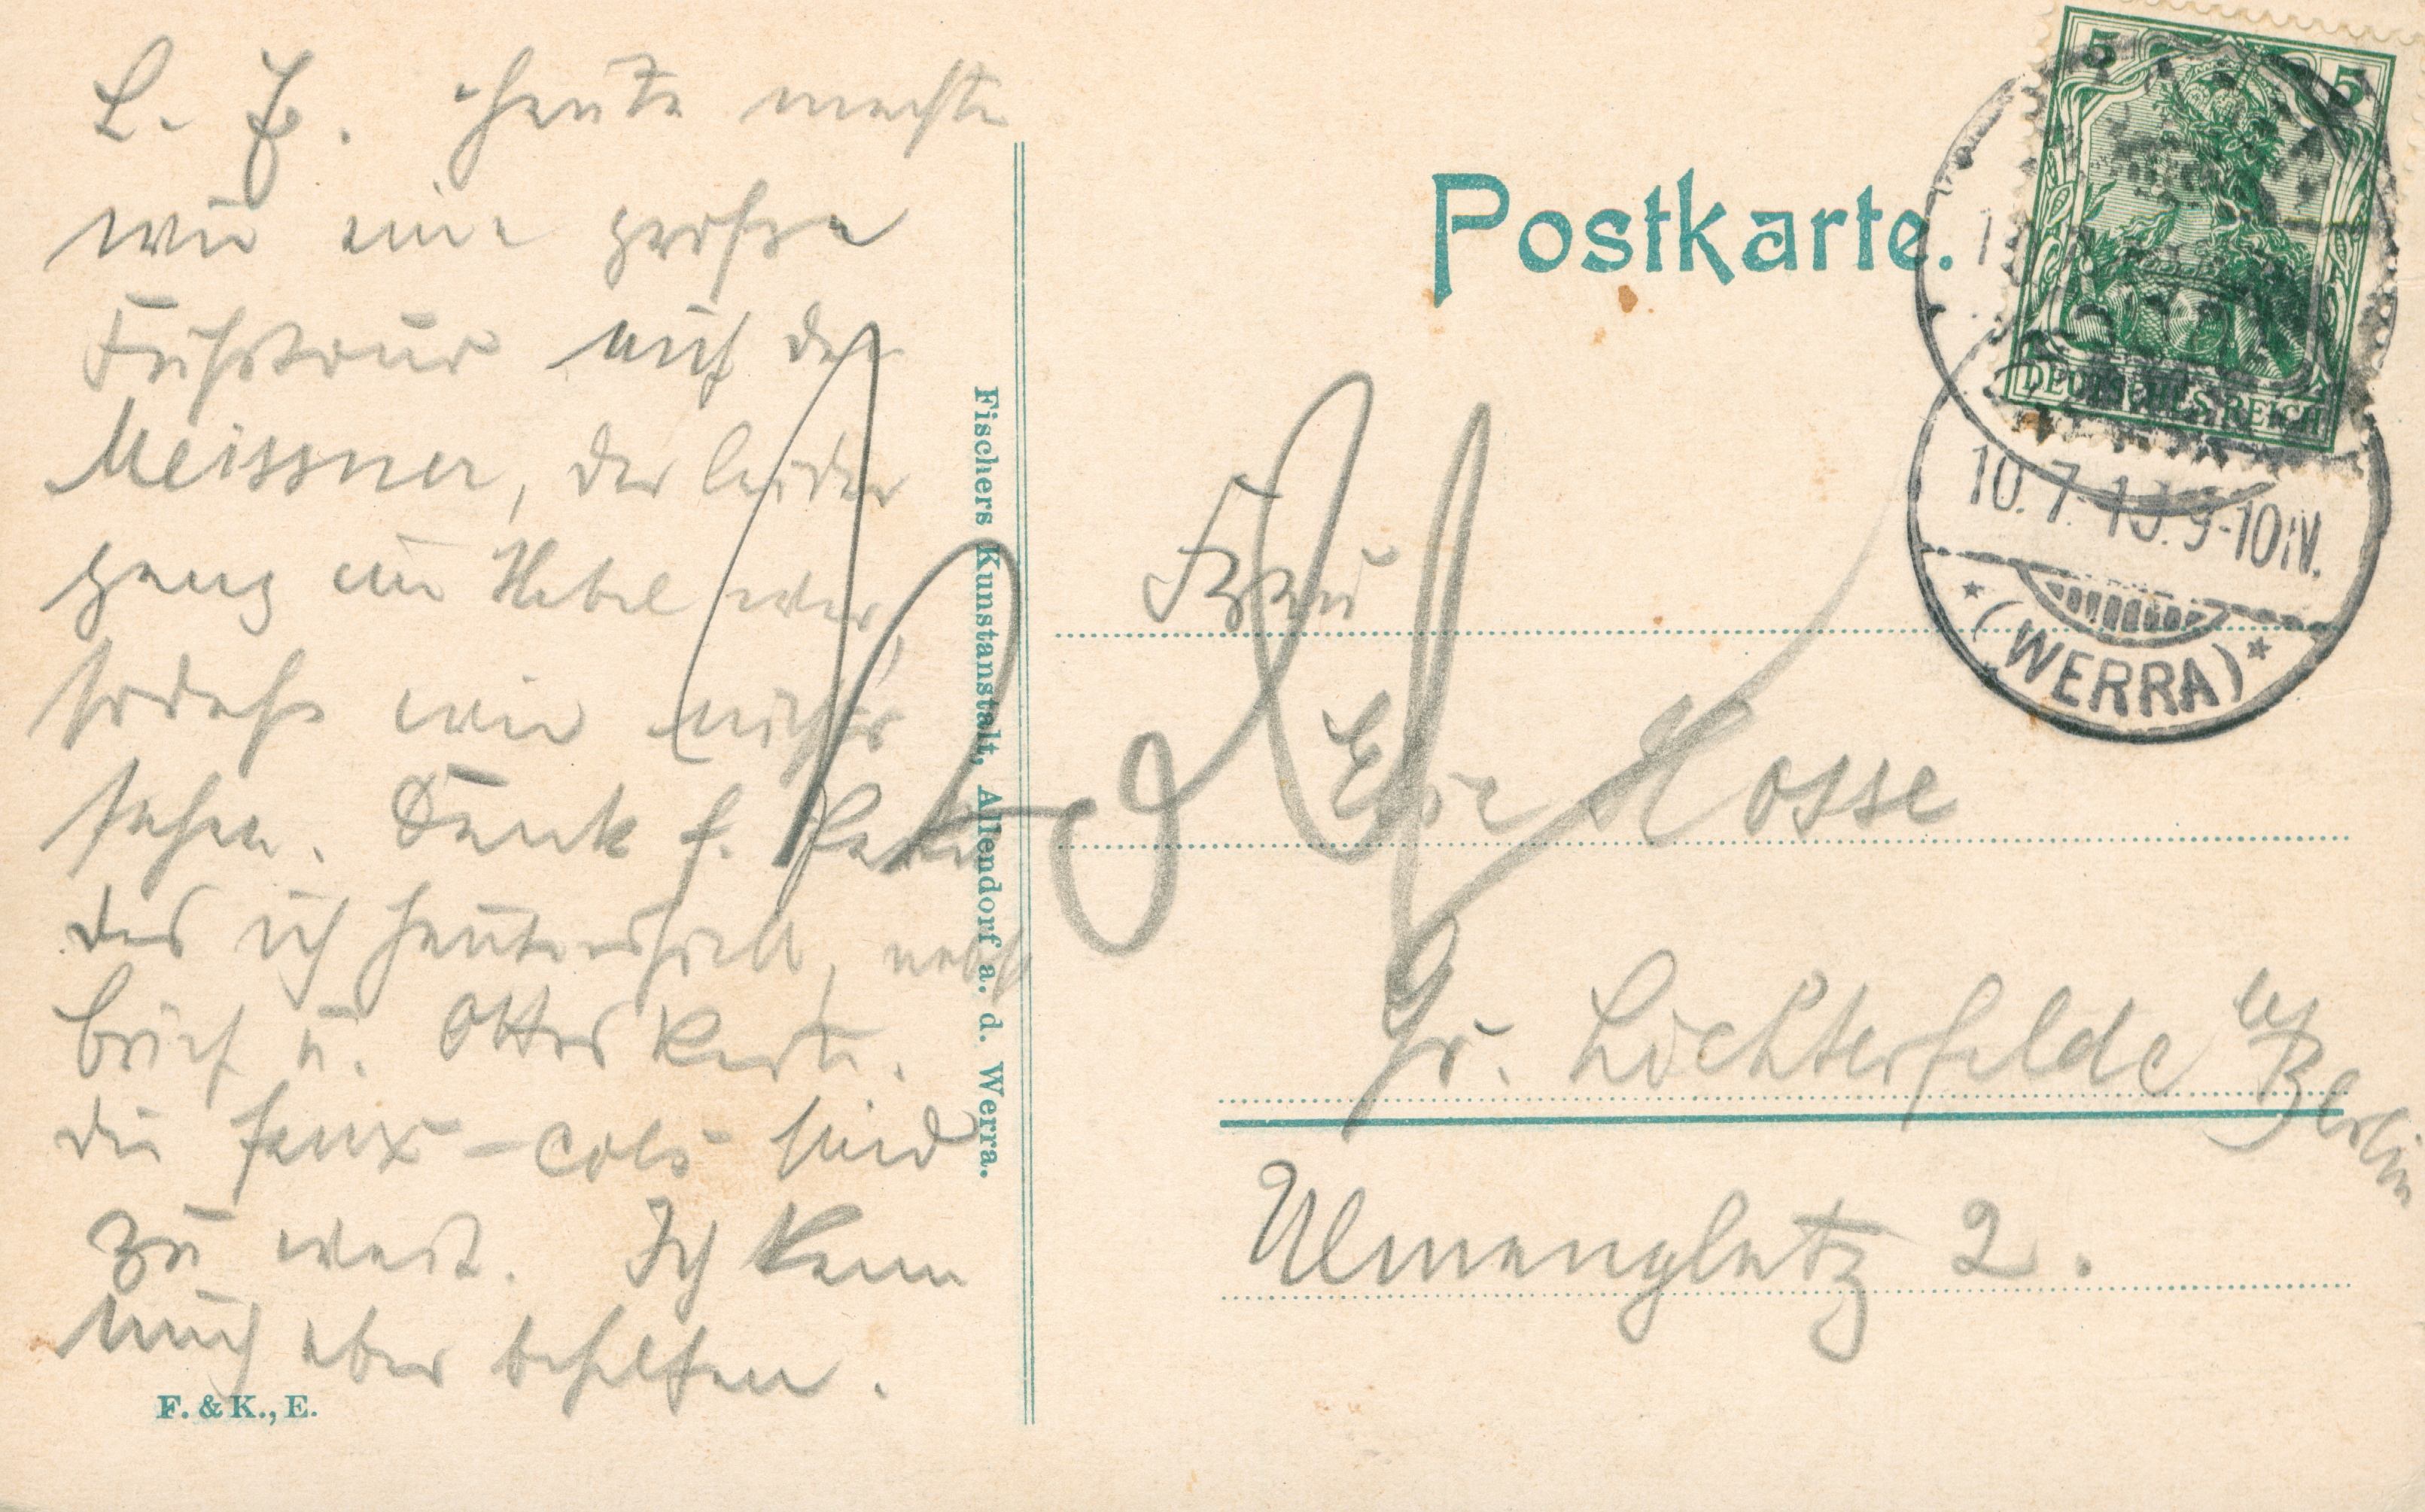 L. E. Heute machte
wir eine grosse
Fusstour auf den
Meissner, der leider
ganz im Nebel war,
sodass wir nichts
sehen. Dank f. Paket
das ich heute erhielt, nebst
Brief u. Ottos Karte.
die faux-cols sind
zu weit. Ich kann
mich aber behelfen.
F. & K., E.
Fischers Kunstanstalt, Allendorf a. d. Werra.
Postkarte.
DEUTSCHES REICH
5 5
10.7.13.9-10N.
* (WERRA) *
Frau
Else Hosse
Gr. Lichterfelde by Berlin
Ulmenplatz 2.